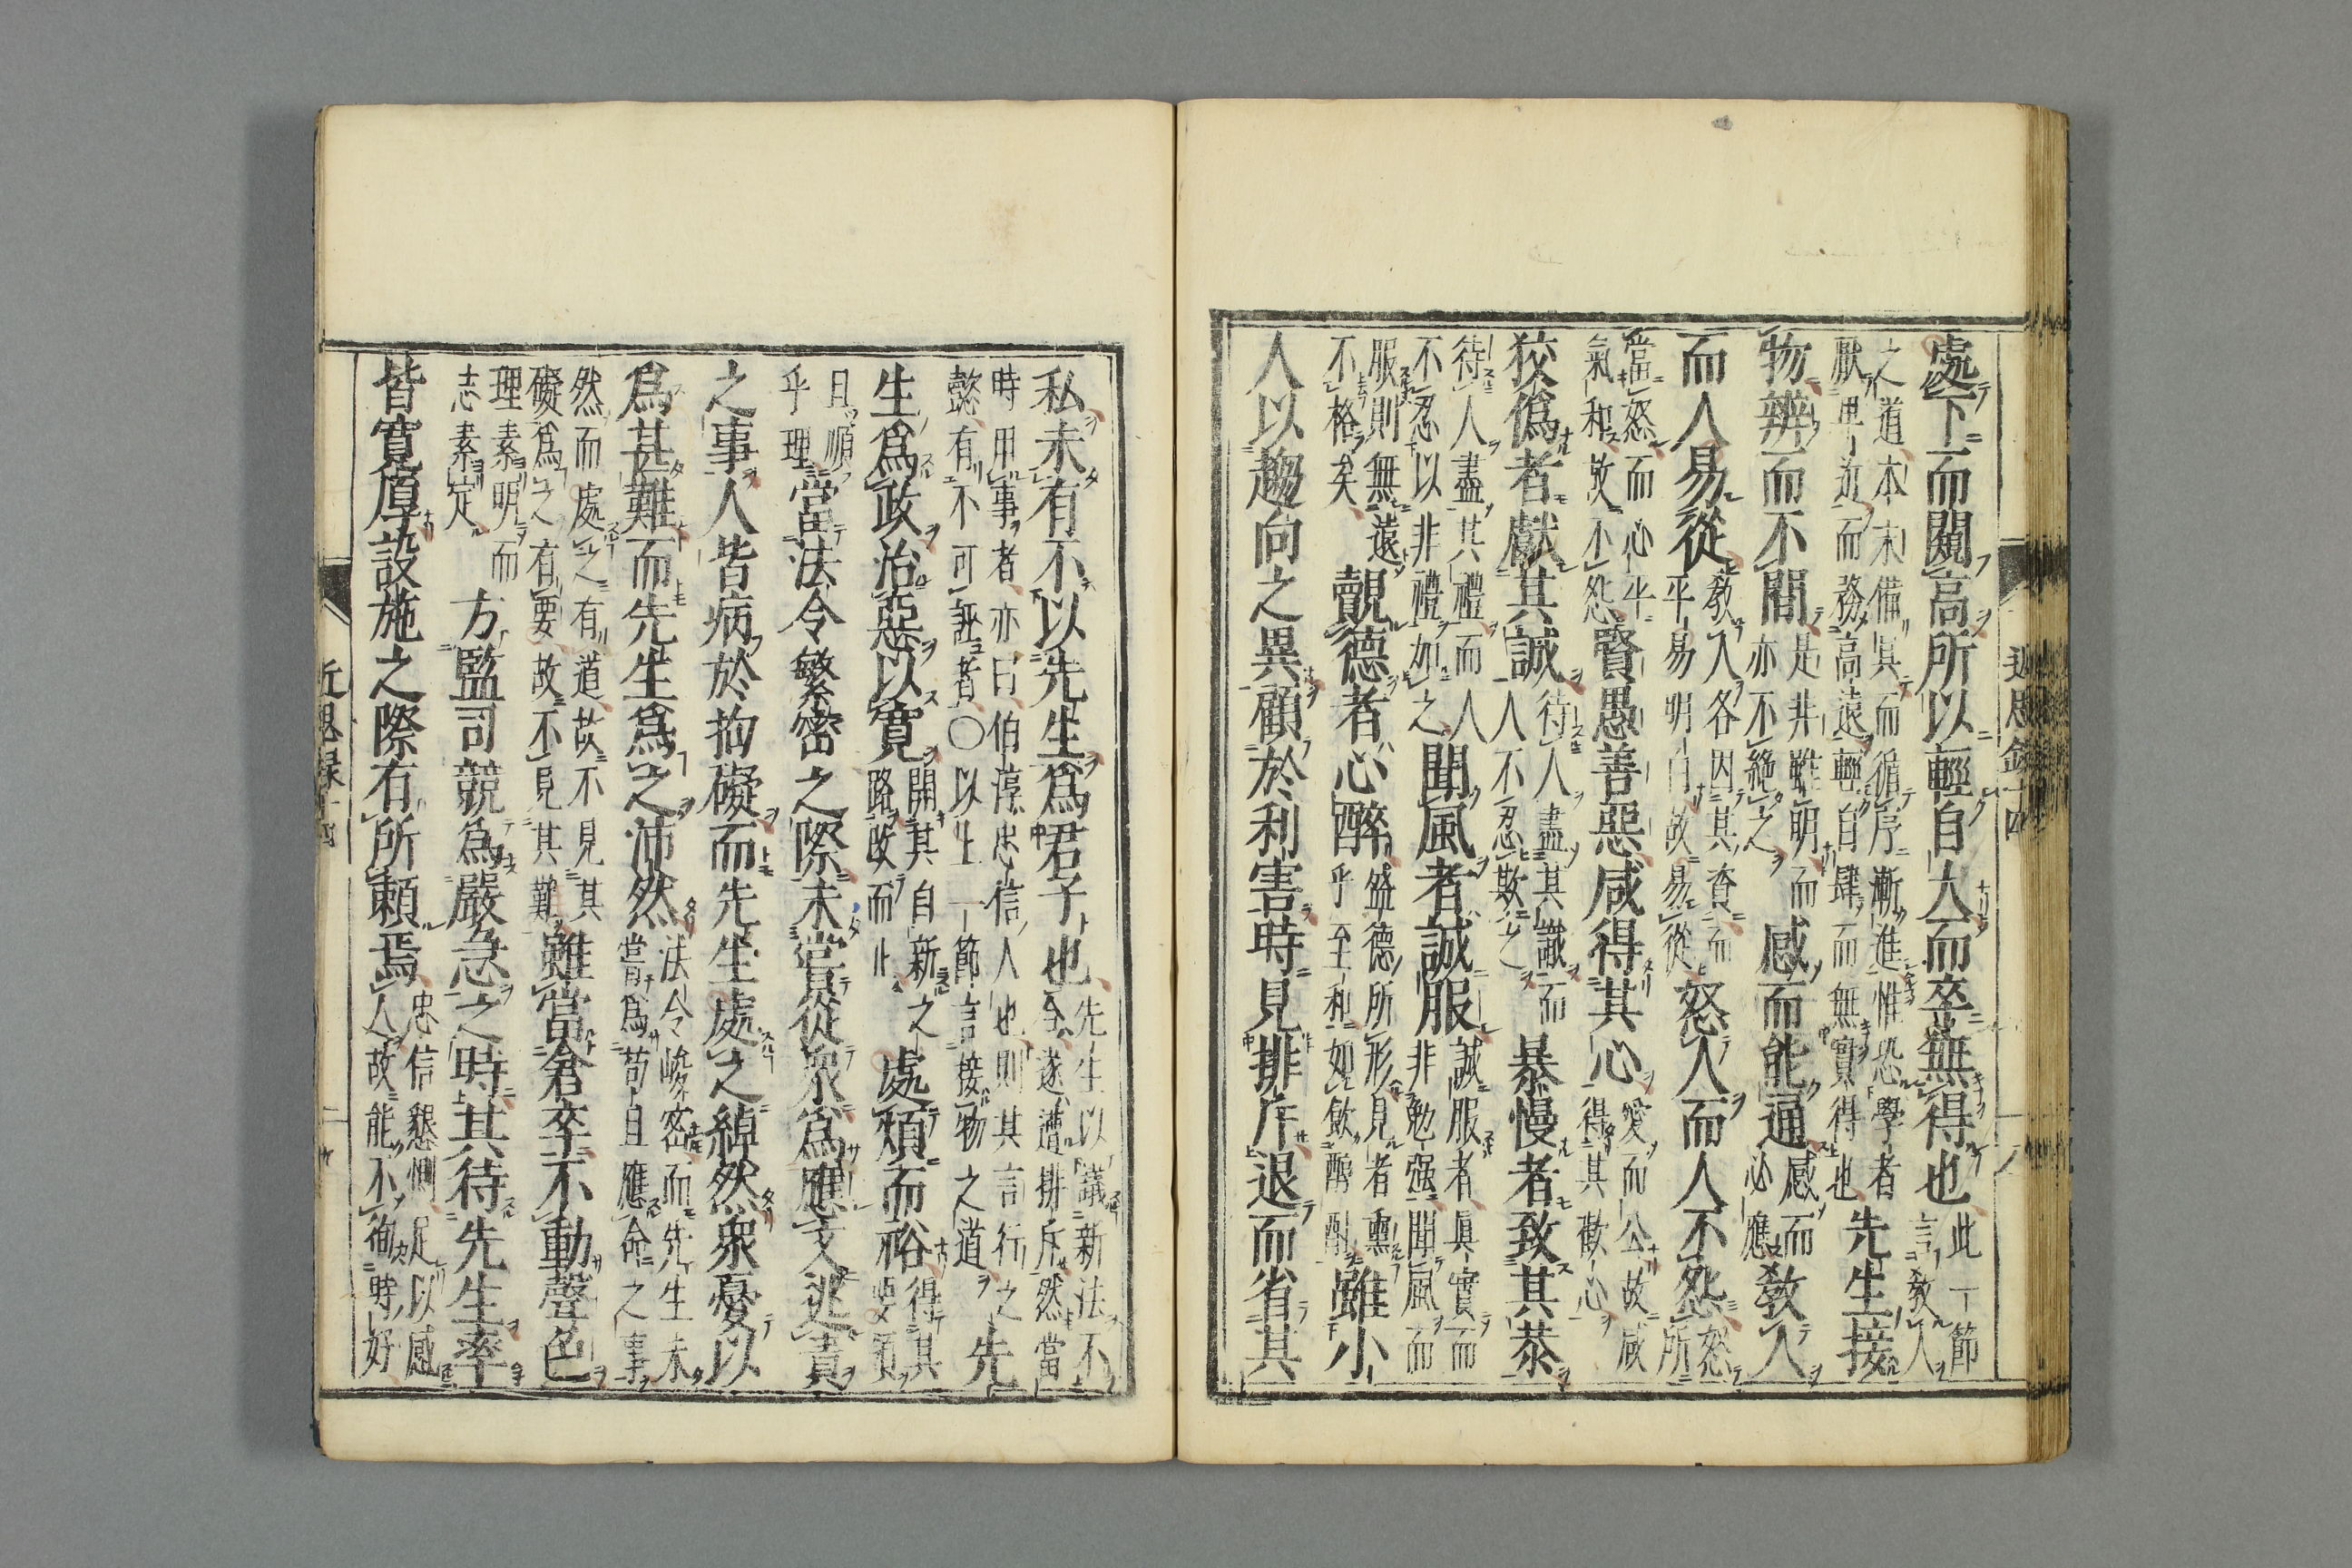 處下而闚高所以輕自大而卒無得也
此一節
言教人
之道本末備具而循序漸進惟恐學者
厭卑近而務高遠輕自肆而無實得也
先生接
物辨而不間
是非雖明而
亦不絶之
感而能通
感而
必應
教人
而人易從
教人各因其資而
平易明白故易從
怒人而人不怨
怒
所
當怒而心平
氣和故不怨
賢愚善惡咸得其心
愛而公故咸
得其歡心
狡僞者獻其誠
待人盡其誠而
人不忍欺之
暴慢者致其恭
待人盡其禮而人
不忍以非禮加之
聞風者誠服
誠服者眞實而
非勉强聞風而
服則無遠
不格矣
覿德者心醉
盛德所形見者熏
乎至和如飲醇酎
雖小
人以趨向之異顧於利害時見排斥退而省其
近思錄十四
私未有不以先生爲君子也
先生以議新法不
合遂遭排斥然當
時用事者亦曰伯淳忠信人也則其言行之
懿有不可誣者○以上一節言接物之道
先
生爲政治惡以寬
開其自新之
路改而止
處煩而裕
得其
要領
且順
乎理
當法令繁密之際未嘗從衆爲應文逃責
之事人皆病於拘礙而先生處之綽然衆憂以
爲甚難而先生爲之沛然
法令峻密而先生未
嘗爲苟且應命之事
然而處之有道故不見其
礙爲之有要故不見其難
雖當倉卒不動聲色
理素明而
志素定
方監司競爲嚴急之時其待先生率
皆寬厚設施之際有所賴焉
忠信懇惻足以感
人故能不徇時好
近思錄十四